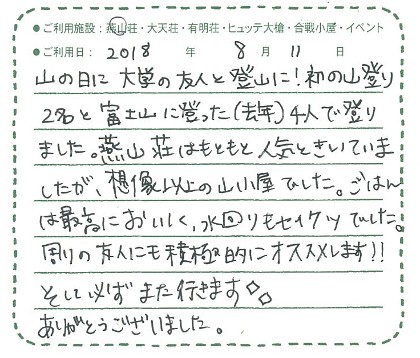 ●ご利用施設：燕山荘・大天荘・有明荘・ヒュッテ大槍・合戦小屋・イベント
●ご利用日： 2018 年 8 月 11 日
山の日に大学の友人と登山に！初の山登り
2名と富士山に登った(去年)4人で登り
ました。燕山荘はもともと人気ときいていま
したが、想像以上の山小屋でした。ごはん
は最高においしく、水回りもセイケツでした。
周りの友人にも積極的にオススメします!!
そして必ずまた行きます◇◇
ありがとうございました。